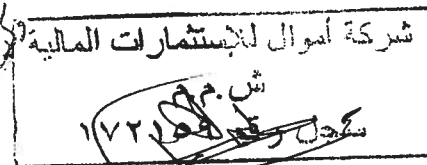 شركة أموال للإستثمارات المالية
ش.م.م
سجل رقم ١٧٢١٥٩